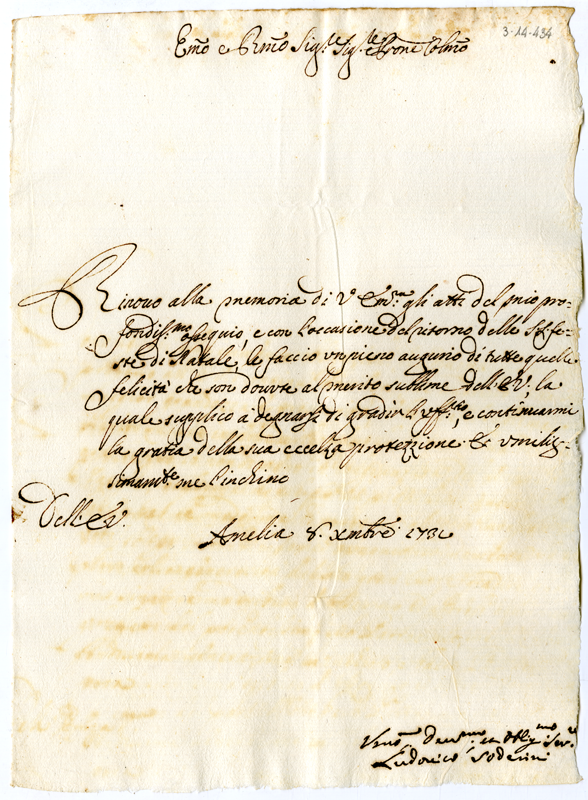 3-14-434
Emo e Rmo Sig.re Sig.re e Prone Colmo
Rinovo alla memoria di V. Em.za gli atti del mio pro-
fondiss.mo ossequio, e con l'occasione del ritorno delle S.te fe-
ste di Natale, le faccio vn pieno augurio di tutte quelle
felicità che son douute al merito sublime dell'E.V. la
quale supplico à degnarsi di gradir l'uff.tio, e continuarmi
la gratia della sua eccelsa protezzione & vmilis-
simam.te me l'inchino
Dell'E.V.
Amelia 8. xmbre 1731
Vmo Deu.mo et Obbg.mo Ser.re
Ludovico Soderini